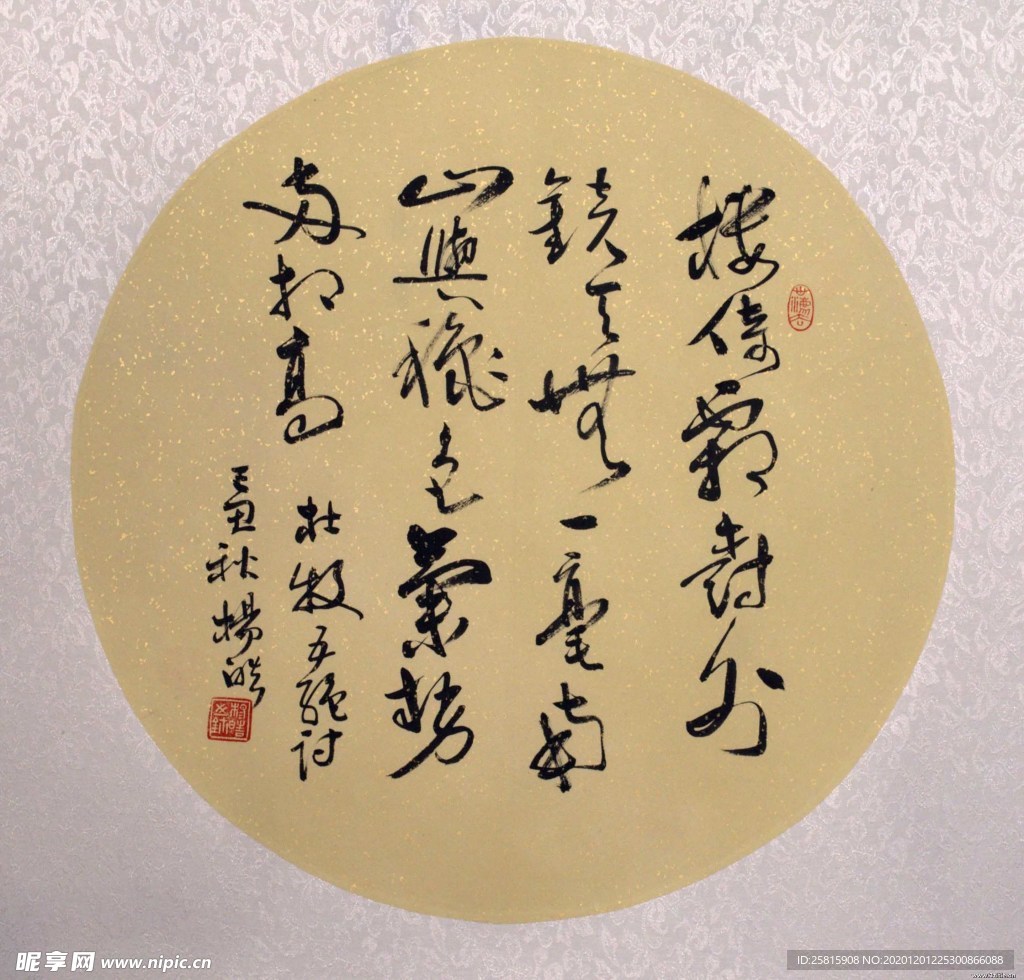 樓倚霜樹外
鏡天無一毫南
山與秋色氣勢
兩相高
杜牧五絕詩
丁丑秋楊皓
昵享网 www.nipic.cn
ID:25815908 NO:20201201225300866088